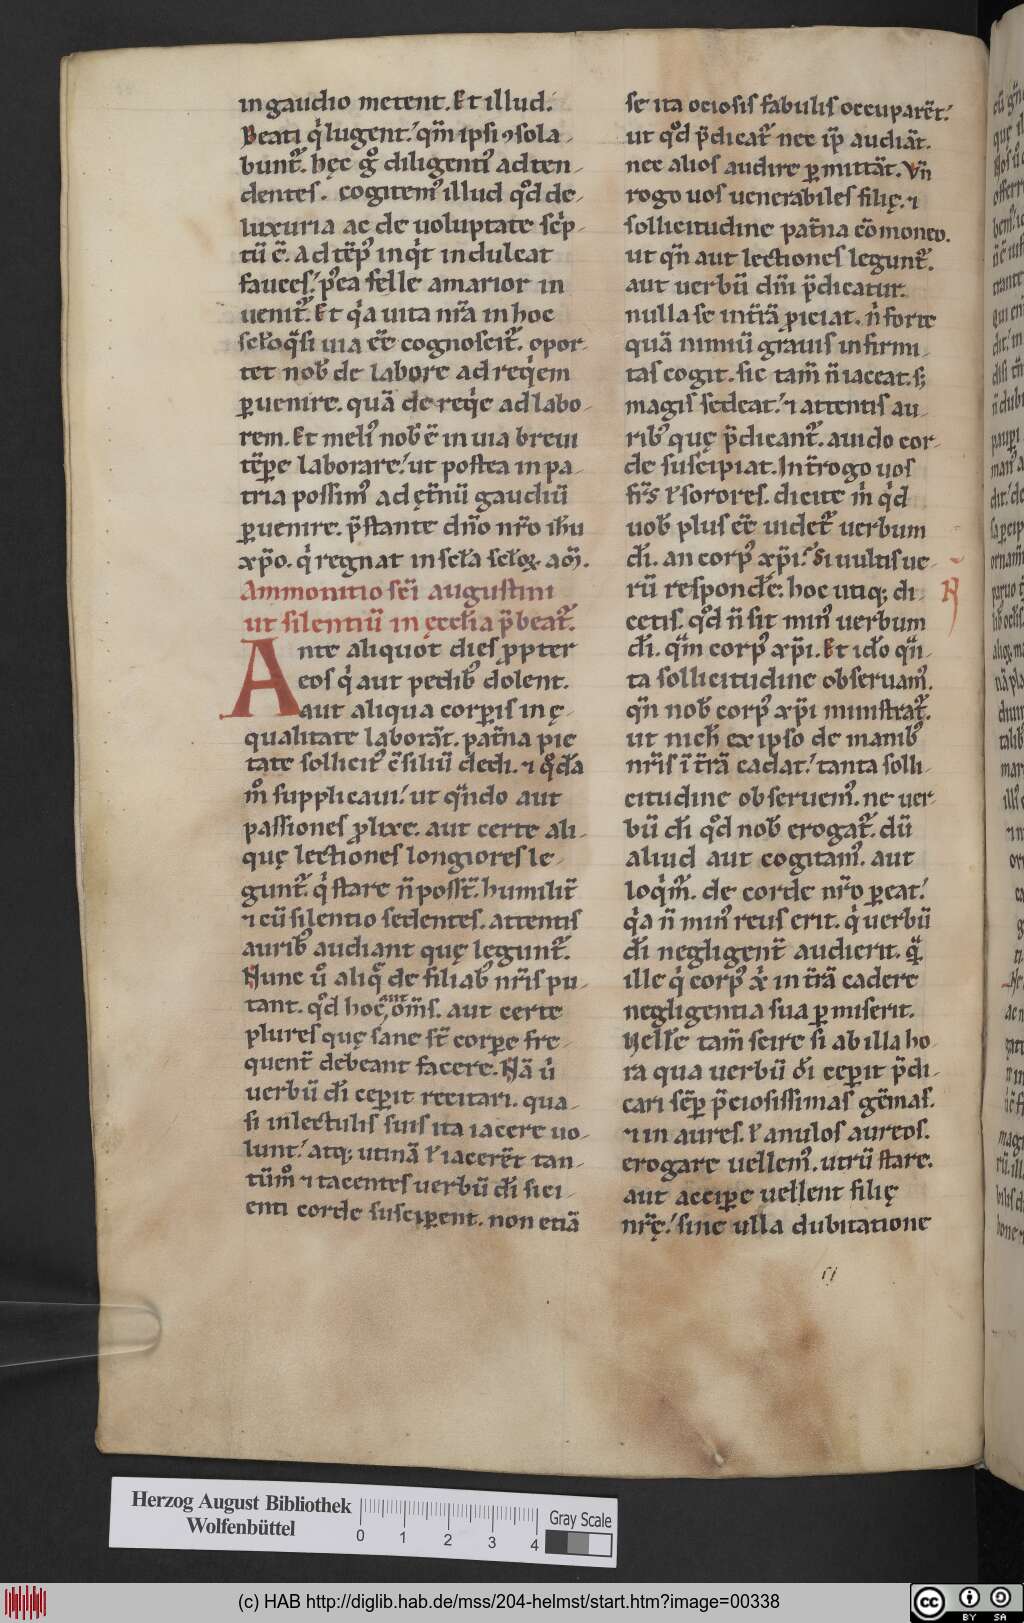 in gaudio metent. Et illud.
Beati q͛ lugent. qm̄ ipsi ꝯsola-
bunt᷑. hęc g͛ diligenti᷒ adten-
dentes. cogitem᷒ illud qd̄ de-
luxuria ac de uoluptate sc͛p-
tū ē. Ad tēp᷒ inq͛t indulcat
fauces. p᷒ea felle amarior in
uenit᷑. Et q͛a uita nr̄a in hoc
sclo q̄si uia eē cognoscit᷑. opor-
tet nob̄ de labore ad req͛em
ꝑuenire. quā de req͛e ad labo-
rem. Et meli᷒ nob̄ ē in uia breui
tēpe laborare. ut postea in pa-
tria possim᷒ ad ęt̄nū gaudiū
ꝑuenire. p̄stante dn̄o nr̄o ihu
xp̄o. q͛ regnat in sc̄la scl̄oꝝ. am̄.
Ammonitio sc̄i augustini
ut silentiū in ęccl̄ia p̄beat᷑.
Ante aliquot dies ꝓpter
eos q͛ aut pedib᷒ dolent.
aut aliqua corꝑis inę-
qualitate laborāt. pat̄na pie
tate sollicit᷒ ꝯsiliū dedi. ⁊ qd̄a
m᷒ supplicaui. ut qn̄do aut
passiones ꝓlixe. aut certe ali-
quę lectiones longiores le-
gunt᷑. q͛ stare n̄ posst̄. humilit̄
⁊ cū silentio sedentes. attentis
aurib᷒ audiant quę legunt᷑.
Nunc u᷒ aliq̄ de filiab᷒ nr̄is pu-
tant. qd̄ hoc aut om̄s. aut certe
plures quę sane st̄ corꝑe fre-
quent̄ debeant facere. Nā u͛
uerbū dī ceꝑit recitari. qua-
si in lectulis suis ita iacere uo-
lunt. atq; utinā ł iacerēt tan-
tūm᷒ ⁊ tacentes uerbū dī sici-
enti corde susciꝑent. non etiā
se ita ociosis fabulis occuparēt.
ut qd̄ p̄dicat᷑ nec ip̄i audiāt.
nec alios audire ꝑmittāt. Vn̄
rogo uos uenerabiles filię. ⁊
sollicitudine pat̄na cōmoneo.
ut qn̄ aut lectiones legunt᷑.
aut uerbū dn̄i p̄dicatur.
nulla se in t̄rā ꝓiciat. n͛ forte
quā nimiū grauis infirmi-
tas cogit. sic tam̄ n̄ iaceat. s;
magis sedeat. ⁊ attentis au-
rib᷒ quę p̄dicant᷑. auido cor-
de suscipiat. Int̄rogo uos
fr̄s ł sorores. dicite m͛ q͛d
uob̄ plus eē uidet᷑ uerbum
dī. an corp᷒ xp̄i. Si uultis ue-
rū respondē. hoc utiq; di-
cetis. qd̄ n̄ sit min᷒ uerbum
dī. qm̄ corp᷒ xp̄i. Et ido qn̄-
ta sollicitudine obseruam᷒.
qn̄ nob̄ corp᷒ xp̄i ministrat᷑.
ut nich̄ ex ipso de manib᷒
nr̄is ī t̄rā cadat. tanta solli-
citudine obseruem᷒. ne uer-
bū dī qd̄ nob̄ erogat᷑. dū
aliud aut cogitam᷒. aut
loq͛m᷑. de corde nr̄o ꝑeat.
q͛a n̄ min᷒ reus erit. q͛ uerbū
dī negligent̄ audierit. q̄
ille q͛ corp᷒ x͛ in t̄rā cadere
negligentia sua ꝑmiserit.
Velle tam̄ scire si ab illa ho-
ra qua uerbū dī ceꝑit p̄di-
cari sēp p̄ciosissimas gēmas.
⁊ in aures. ł anulos aureos.
erogare uellem᷒. utrū stare.
aut acciꝑe uellent filię
nr̄ę. sine ulla dubitatione
Herzog August Bibliothek
Wolfenbüttel
0 1 2 3 4
Gray Scale
(c) HAB http://diglib.hab.de/mss/204-helmst/start.htm?image=00338
cc BY SA